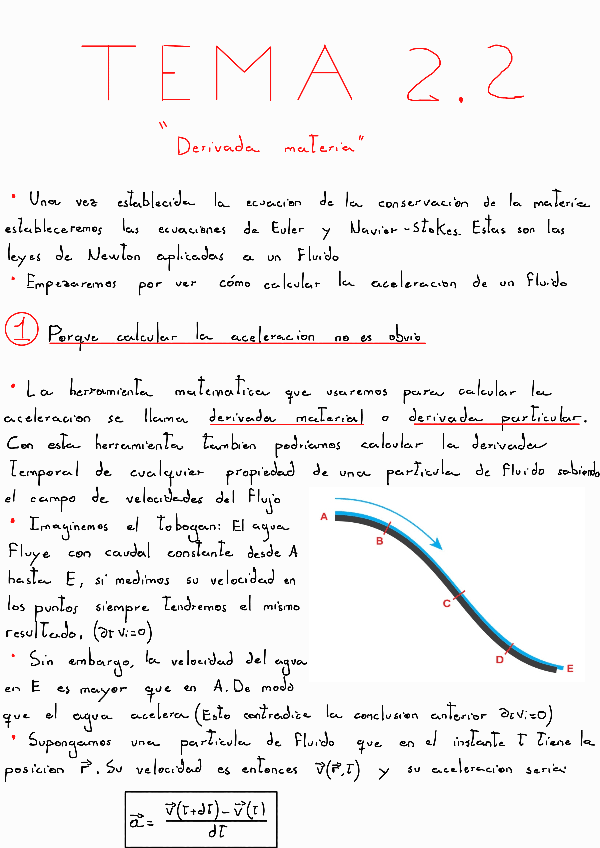 TEMA 2.2
"Derivada materia"
• Una vez establecida la ecuacion de la conservacion de la materia
estableceremos las ecuaciones de Euler y Navier-Stokes. Estas son las
leyes de Newton aplicadas a un Fluido
• Empezaremos por ver cómo calcular la aceleracion de un fluido
1 Porque calcular la aceleracion no es obvio
• La herramienta matematica que usaremos para calcular la
aceleracion se llama derivada material o derivada particular.
Con esta herramienta tambien podriamos calcular la derivada
Temporal de cualquier propiedad de una particula de fluido sabiendo
el campo de velocidades del flujo
• Imaginemos el tobogan: El agua
Fluye con caudal constante desde A
hasta E, si medimos su velocidad en
los puntos siempre tendremos el mismo
resultado, (∂τ vi=0)
• Sin embargo, la velocidad del agua
en E es mayor que en A. De modo
que el agua acelera (Esto contradice la conclusion anterior ∂τ vi=0)
• Supongamos una particula de fluido que en el instante τ tiene la
posicion r⃗. Su velocidad es entonces v⃗(r⃗,τ) y su aceleracion seria:
a⃗ = (v⃗(τ+dτ) - v⃗(τ)) / dτ
A
B
C
D
E